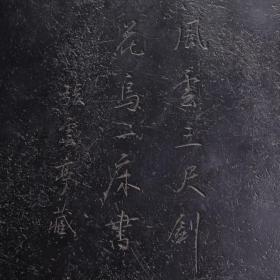 風雲三尺劍
花鳥一床書
張雲亭藏